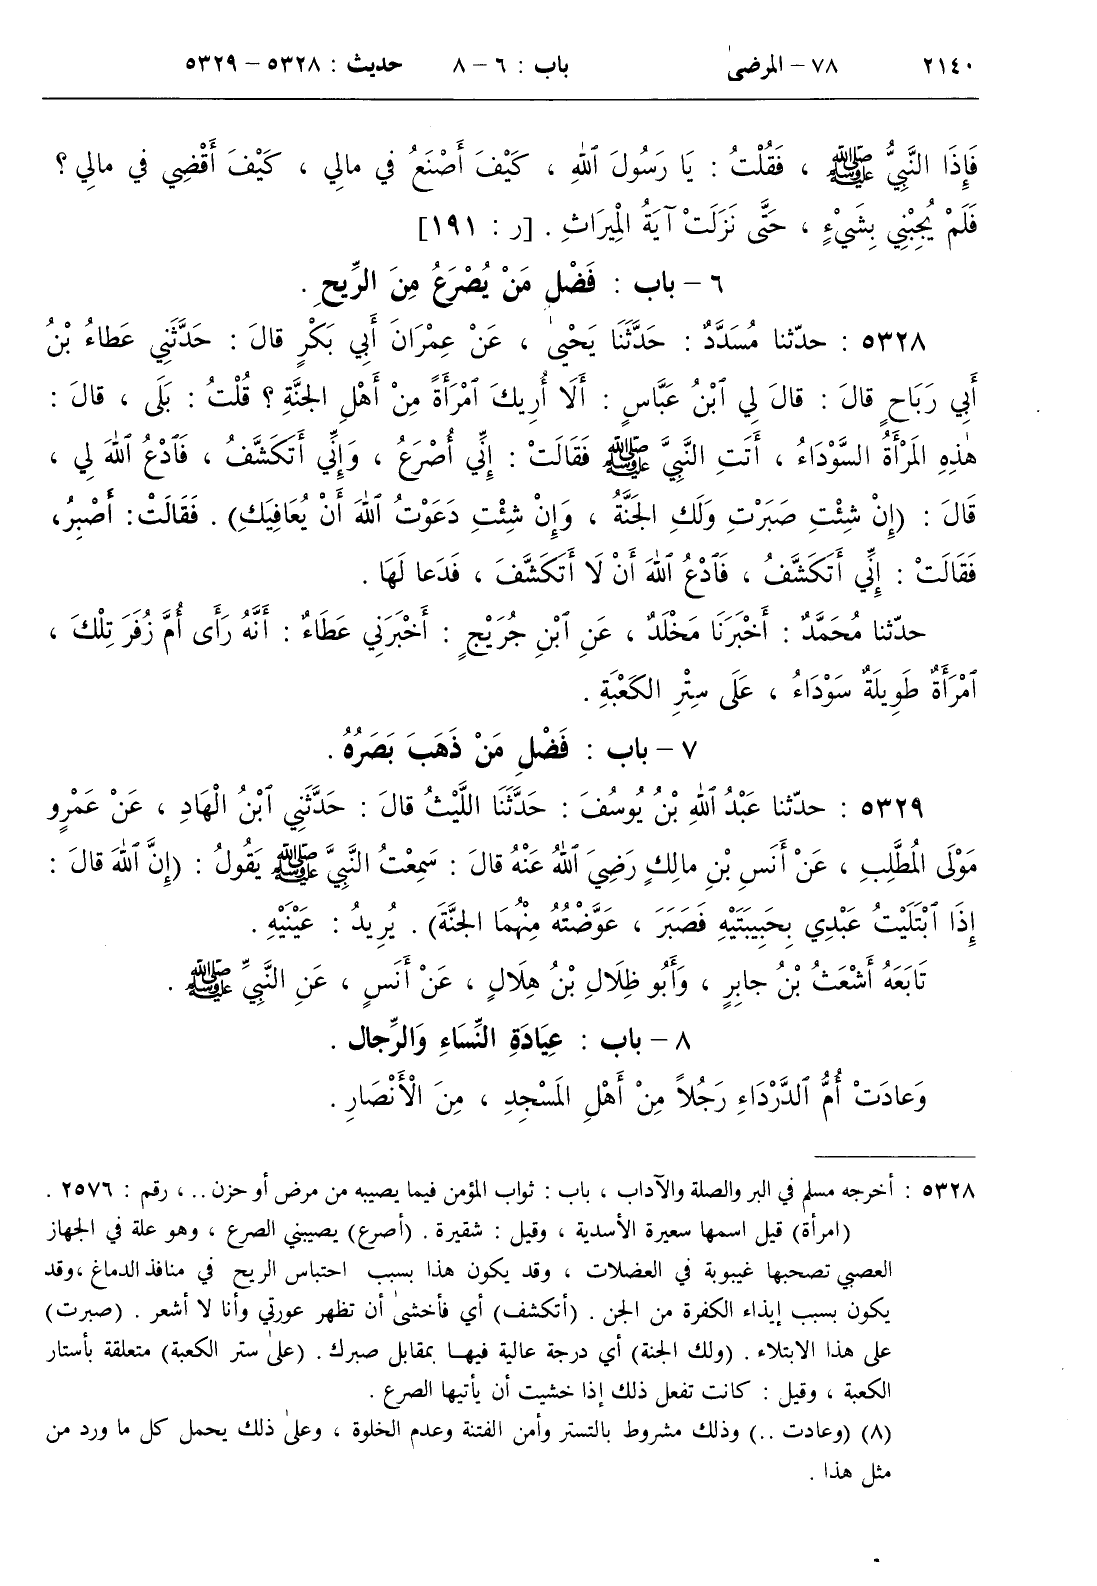 ٢١٤٠ ٧٨ – المرضىٰ باب : ٦ – ٨ حديث : ٥٣٢٨ – ٥٣٢٩
فَإِذَا النَّبِيُّ ﷺ ، فَقُلْتُ : يَا رَسُولَ ٱللهِ ، كَيْفَ أَصْنَعُ في مالِي ، كَيْفَ أَقْضِي في مالِي ؟
فَلَمْ يُجِبْنِي بِشَيْءٍ ، حَتَّى نَزَلَتْ آيَةُ الْمِيرَاثِ . [ر : ١٩١]
٦ – باب : فَضْلِ مَنْ يُصْرَعُ مِنَ الرِّيحِ .
٥٣٢٨ : حدّثنا مُسَدَّدٌ : حَدَّثَنَا يَحْيىٰ ، عَنْ عِمْرَانَ أَبِي بَكْرٍ قالَ : حَدَّثَنِي عَطاءُ بْنُ
أَبِي رَبَاحٍ قالَ : قالَ لِي ٱبْنُ عَبَّاسٍ : أَلَا أُرِيكَ ٱمْرَأَةً مِنْ أَهْلِ الجَنَّةِ ؟ قُلْتُ : بَلَى ، قالَ :
هٰذِهِ المَرْأَةُ السَّوْدَاءُ ، أَتَتِ النَّبِيَّ ﷺ فَقَالَتْ : إِنِّي أُصْرَعُ ، وَإِنِّي أَتَكَشَّفُ ، فَٱدْعُ ٱللهَ لِي ،
قَالَ : (إِنْ شِئْتِ صَبَرْتِ وَلَكِ الجَنَّةُ ، وَإِنْ شِئْتِ دَعَوْتُ ٱللهَ أَنْ يُعَافِيَكِ) . فَقَالَتْ : أَصْبِرُ ،
فَقَالَتْ : إِنِّي أَتَكَشَّفُ ، فَٱدْعُ ٱللهَ أَنْ لَا أَتَكَشَّفَ ، فَدَعا لَهَا .
حدّثنا مُحَمَّدٌ : أَخْبَرَنَا مَخْلَدٌ ، عَنِ ٱبْنِ جُرَيْجٍ : أَخْبَرَنِي عَطَاءٌ : أَنَّهُ رَأَى أُمَّ زُفَرَ تِلْكَ ،
ٱمْرَأَةٌ طَوِيلَةٌ سَوْدَاءُ ، عَلَى سِتْرِ الكَعْبَةِ .
٧ – باب : فَضْلِ مَنْ ذَهَبَ بَصَرُهُ .
٥٣٢٩ : حدّثنا عَبْدُ ٱللهِ بْنُ يُوسُفَ : حَدَّثَنَا اللَّيْثُ قالَ : حَدَّثَنِي ٱبْنُ الْهَادِ ، عَنْ عَمْرٍو
مَوْلَى المُطَّلِبِ ، عَنْ أَنَسِ بْنِ مالِكٍ رَضِيَ ٱللهُ عَنْهُ قالَ : سَمِعْتُ النَّبِيَّ ﷺ يَقُولُ : (إِنَّ ٱللهَ قالَ :
إِذَا ٱبْتَلَيْتُ عَبْدِي بِحَبِيبَتَيْهِ فَصَبَرَ ، عَوَّضْتُهُ مِنْهُمَا الجَنَّةَ) . يُرِيدُ : عَيْنَيْهِ .
تَابَعَهُ أَشْعَثُ بْنُ جابِرٍ ، وَأَبُو ظِلَالِ بْنُ هِلَالٍ ، عَنْ أَنَسٍ ، عَنِ النَّبِيِّ ﷺ .
٨ – باب : عِيَادَةِ النِّسَاءِ وَالرِّجالِ .
وَعادَتْ أُمُّ ٱلدَّرْدَاءِ رَجُلاً مِنْ أَهْلِ المَسْجِدِ ، مِنَ الْأَنْصَارِ .
٥٣٢٨ : أخرجه مسلم في البر والصلة والآداب ، باب : ثواب المؤمن فيما يصيبه من مرض أو حزن .. ، رقم : ٢٥٧٦ .
(امرأة) قيل اسمها سعيرة الأسدية ، وقيل : شقيرة . (أصرع) يصيبني الصرع ، وهو علة في الجهاز
العصبي تصحبها غيبوبة في العضلات ، وقد يكون هذا بسبب احتباس الريح في منافذ الدماغ ،وقد
يكون بسبب إيذاء الكفرة من الجن . (أتكشف) أي فأخشىٰ أن تظهر عورتي وأنا لا أشعر . (صبرت)
على هذا الابتلاء . (ولك الجنة) أي درجة عالية فيها بمقابل صبرك . (علىٰ ستر الكعبة) متعلقة بأستار
الكعبة ، وقيل : كانت تفعل ذلك إذا خشيت أن يأتيها الصرع .
(٨) (وعادت ..) وذلك مشروط بالتستر وأمن الفتنة وعدم الخلوة ، وعلىٰ ذلك يحمل كل ما ورد من
مثل هذا .